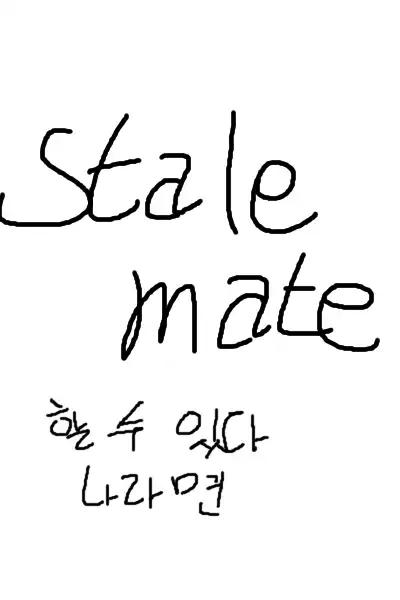 Stale
mate
할 수 있다
나라면